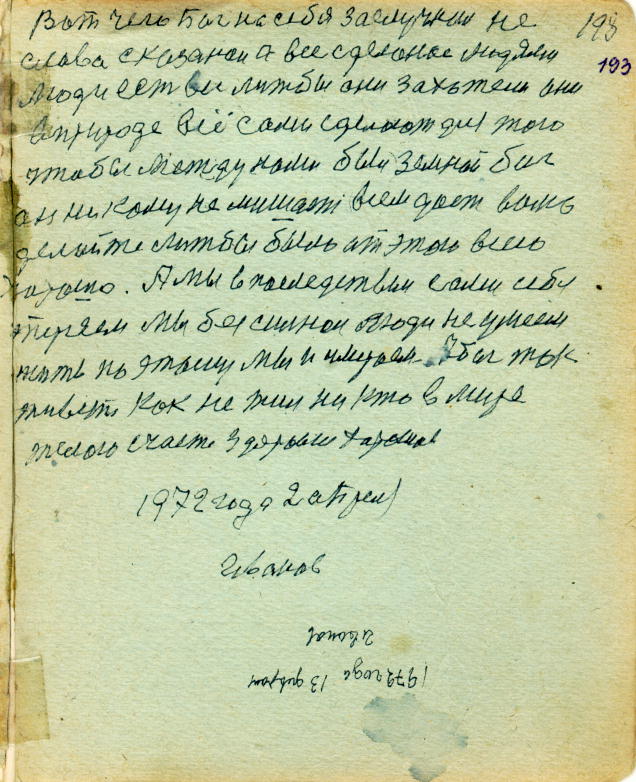 193
193
Вот чего Бог на себя заслужил не
слова сказаной а все сделоное людями
люди естви лишбы они захотели они
в природе всё сами сделают для того
чтобы между нами был земной бог
он ни кому не мишает всем дает волю
делайте лишбы было от этого всего
харашо. А мы в последствии сами себе
теряем мы бессилной люди не умеем
жить по этому мы и умераем. А бог так
живет как не жил ни кто в мире
желою счастя здоровия хорошой
1972 года 2 апреля
Иванов
Иванов
1972 года 13 феврал